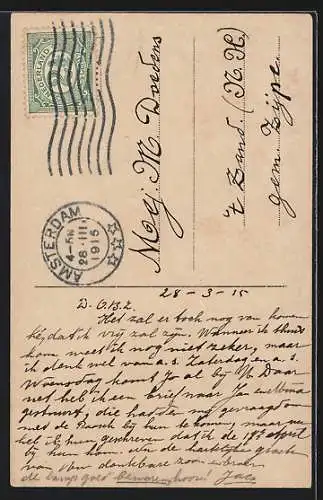 NEDERLAND
AMSTERDAM
4-5N
28 III
1915
Mej. M. Doedens
't Zand. (N.H)
gem. Zijpe
28-3-15
Het zal er toch nog van komen
dat ik vrij zal zijn. Wanneer ik thuis
kom weet ik nog niet zeker, maar
ik denk wel van a.s. Zaterdag en a.s.
Woensdag komt Jo al bij
heb ik een brief naar Jan en
gestuurd, die hadden mij gevraagd om
met de Paasch bij hun te komen, maar nu
heb ik hun geschreven dat ik de 17e april
bij hun kom. en de hartelijke groeten
van Uw dankbare zoon en broer
de lamp goed Jac.